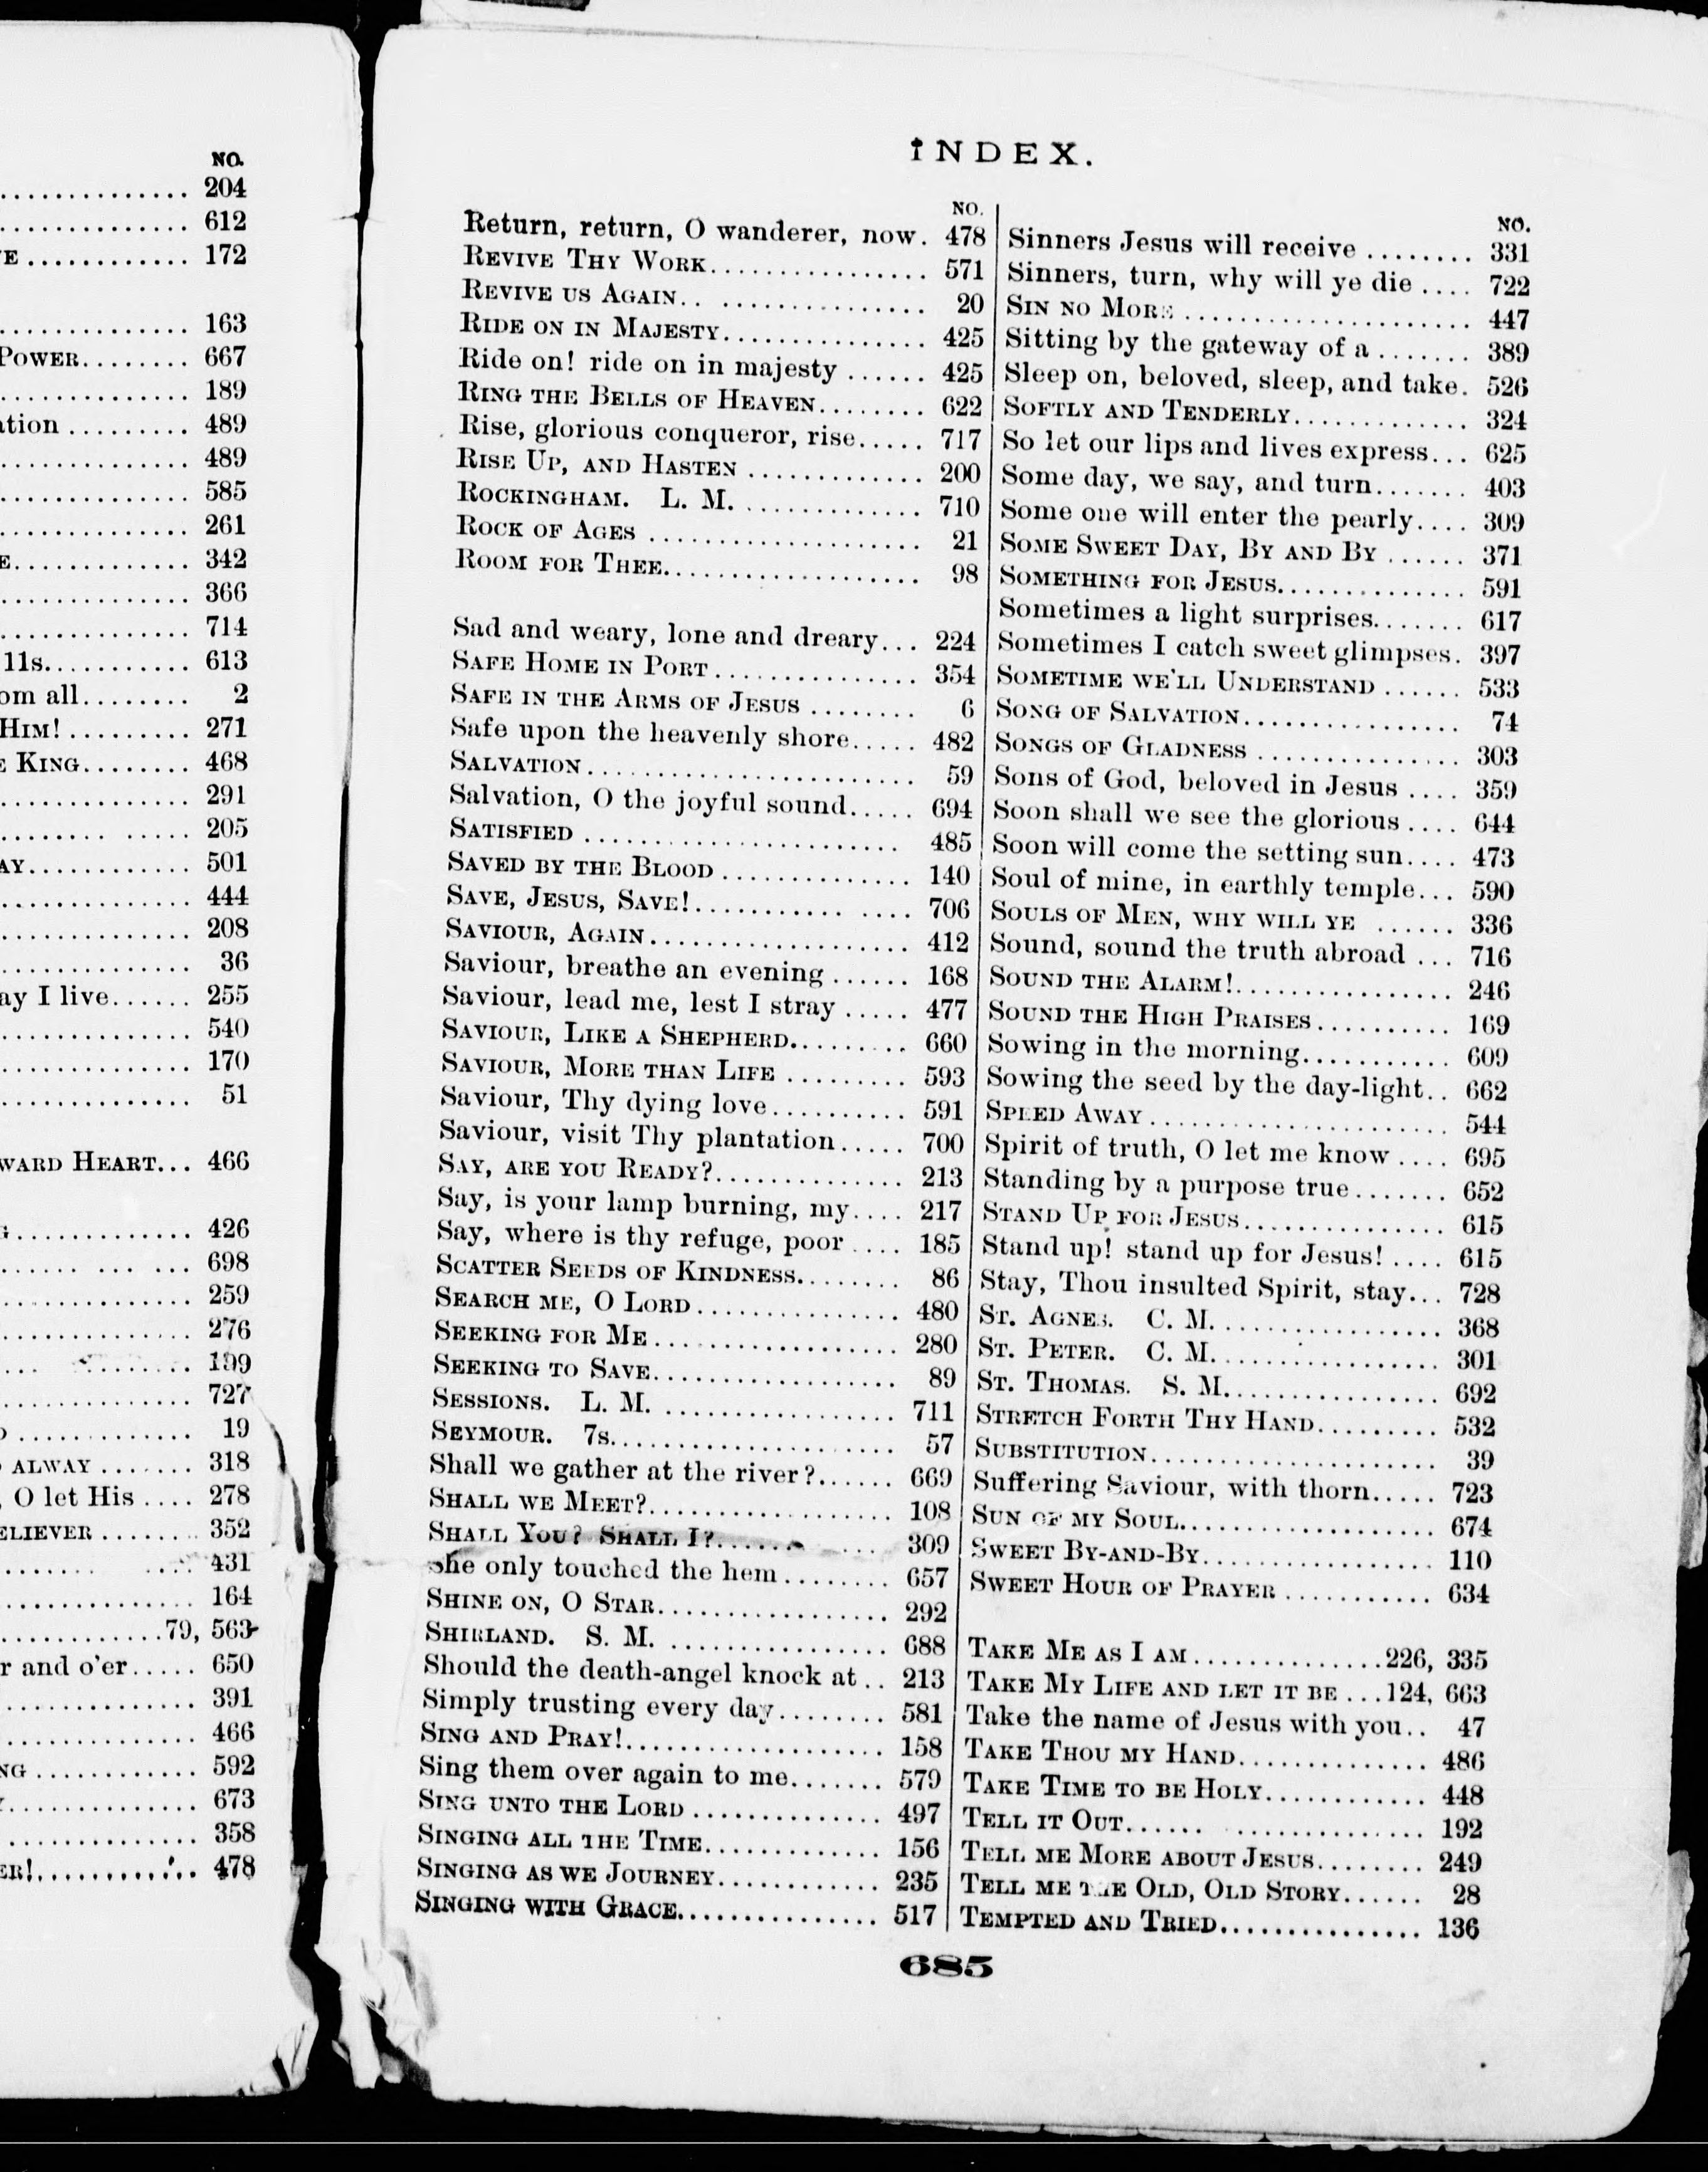 NO.
204
612
E 172
163
POWER 667
189
ation 489
489
585
261
E 342
366
714
11s. 613
om all 2
HIM! 271
E KING 468
291
205
AY 501
444
208
36
ay I live 255
540
170
51
WARD HEART... 466
G 426
698
259
276
199
727
19
ALWAY 318
, O let His .... 278
ELIEVER 352
431
164
79, 563
r and o'er 650
391
466
NG 592
673
358
ER! 478
INDEX.
NO.
Return, return, O wanderer, now. 478
REVIVE THY WORK 571
REVIVE US AGAIN 20
RIDE ON IN MAJESTY 425
Ride on! ride on in majesty 425
RING THE BELLS OF HEAVEN 622
Rise, glorious conqueror, rise 717
RISE UP, AND HASTEN 200
ROCKINGHAM. L. M. 710
ROCK OF AGES 21
ROOM FOR THEE 98
Sad and weary, lone and dreary... 224
SAFE HOME IN PORT 354
SAFE IN THE ARMS OF JESUS 6
Safe upon the heavenly shore 482
SALVATION 59
Salvation, O the joyful sound 694
SATISFIED 485
SAVED BY THE BLOOD 140
SAVE, JESUS, SAVE! 706
SAVIOUR, AGAIN 412
Saviour, breathe an evening 168
Saviour, lead me, lest I stray 477
SAVIOUR, LIKE A SHEPHERD 660
SAVIOUR, MORE THAN LIFE 593
Saviour, Thy dying love 591
Saviour, visit Thy plantation 700
SAY, ARE YOU READY? 213
Say, is your lamp burning, my.... 217
Say, where is thy refuge, poor .... 185
SCATTER SEEDS OF KINDNESS 86
SEARCH ME, O LORD 480
SEEKING FOR ME 280
SEEKING TO SAVE 89
SESSIONS. L. M. 711
SEYMOUR. 7s. 57
Shall we gather at the river? 669
SHALL WE MEET? 108
SHALL YOU? SHALL I? 309
She only touched the hem 657
SHINE ON, O STAR 292
SHIRLAND. S. M. 688
Should the death-angel knock at .. 213
Simply trusting every day 581
SING AND PRAY! 158
Sing them over again to me 579
SING UNTO THE LORD 497
SINGING ALL THE TIME 156
SINGING AS WE JOURNEY 235
SINGING WITH GRACE 517
NO.
Sinners Jesus will receive 331
Sinners, turn, why will ye die .... 722
SIN NO MORE 447
Sitting by the gateway of a 389
Sleep on, beloved, sleep, and take. 526
SOFTLY AND TENDERLY 324
So let our lips and lives express... 625
Some day, we say, and turn 403
Some one will enter the pearly.... 309
SOME SWEET DAY, BY AND BY 371
SOMETHING FOR JESUS 591
Sometimes a light surprises 617
Sometimes I catch sweet glimpses. 397
SOMETIME WE'LL UNDERSTAND 533
SONG OF SALVATION 74
SONGS OF GLADNESS 303
Sons of God, beloved in Jesus .... 359
Soon shall we see the glorious .... 644
Soon will come the setting sun.... 473
Soul of mine, in earthly temple... 590
SOULS OF MEN, WHY WILL YE 336
Sound, sound the truth abroad ... 716
SOUND THE ALARM! 246
SOUND THE HIGH PRAISES 169
Sowing in the morning 609
Sowing the seed by the day-light.. 662
SPEED AWAY 544
Spirit of truth, O let me know .... 695
Standing by a purpose true 652
STAND UP FOR JESUS 615
Stand up! stand up for Jesus! .... 615
Stay, Thou insulted Spirit, stay... 728
ST. AGNES. C. M. 368
ST. PETER. C. M. 301
ST. THOMAS. S. M. 692
STRETCH FORTH THY HAND 532
SUBSTITUTION 39
Suffering Saviour, with thorn 723
SUN OF MY SOUL 674
SWEET BY-AND-BY 110
SWEET HOUR OF PRAYER 634
TAKE ME AS I AM 226, 335
TAKE MY LIFE AND LET IT BE ...124, 663
Take the name of Jesus with you.. 47
TAKE THOU MY HAND 486
TAKE TIME TO BE HOLY 448
TELL IT OUT 192
TELL ME MORE ABOUT JESUS 249
TELL ME THE OLD, OLD STORY 28
TEMPTED AND TRIED 136
685